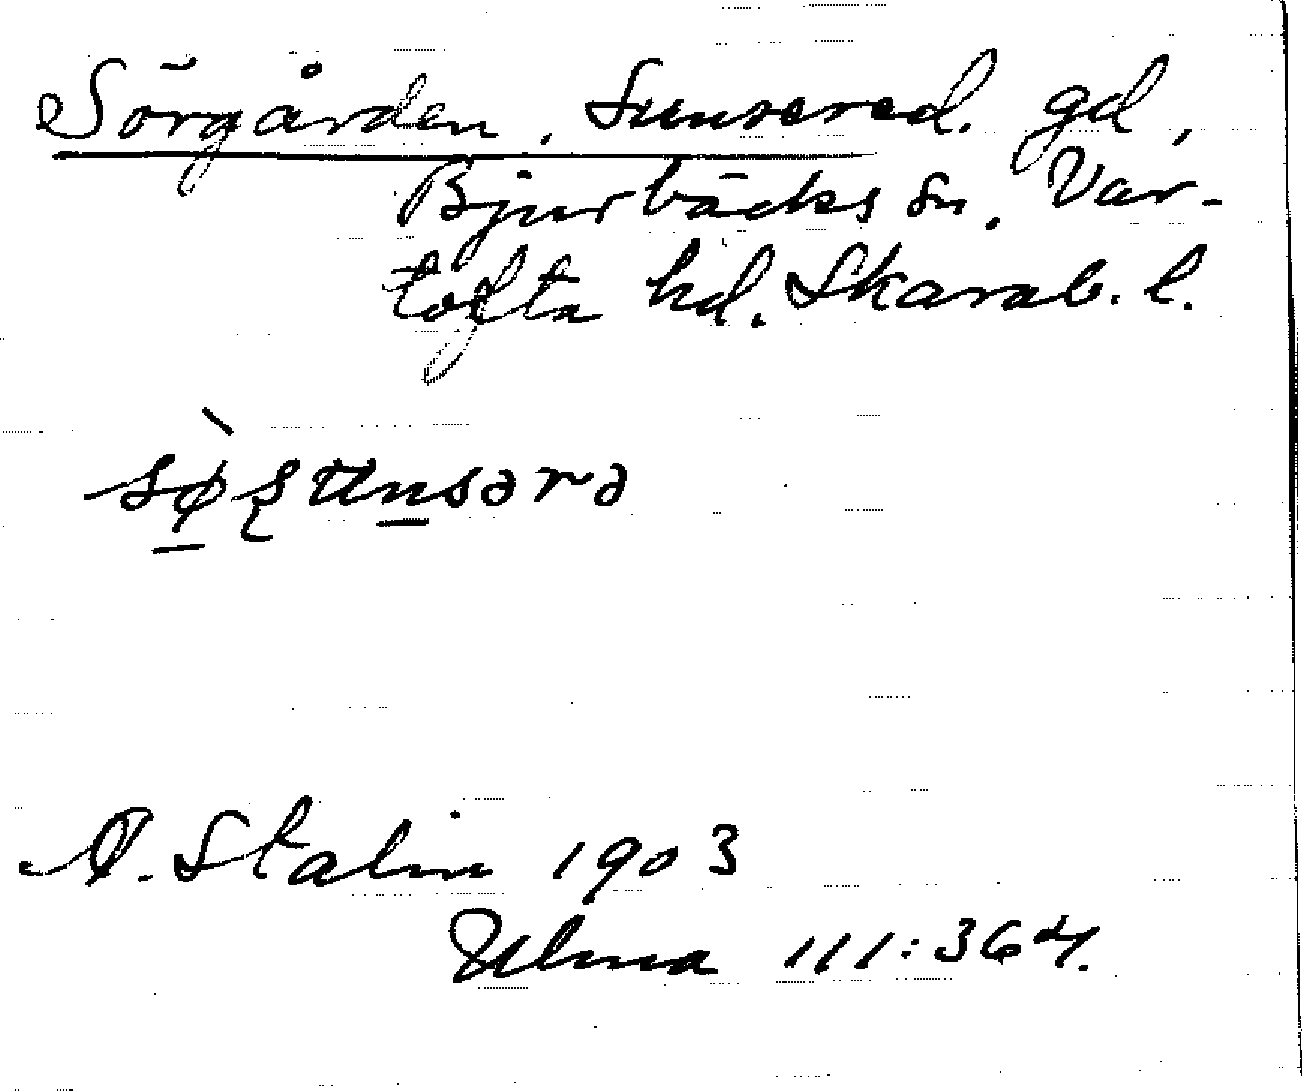 Sörgården, Sunsered. gd,
Bjurbäcks sn. Var-
tofta hd. Skarab. l.
Stalin 1903
Ulma 111:364.